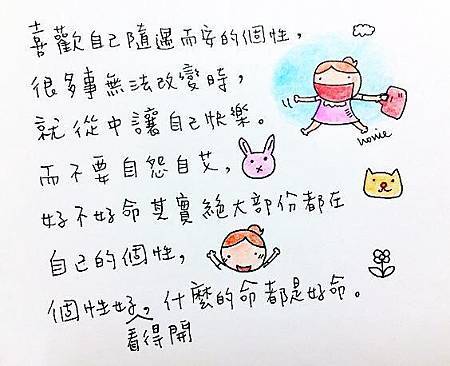 喜歡自己隨遇而安的個性，
很多事無法改變時，
就從中讓自己快樂。
而不要自怨自艾，
好不好命其實絕大部份都在
自己的個性，
個性好，什麼的命都是好命。
看得開
nonie